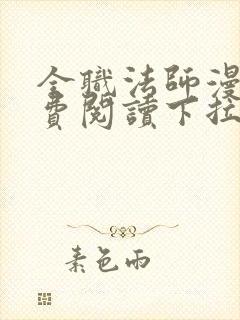 全職法師漫
費閱讀下拉
素色雨